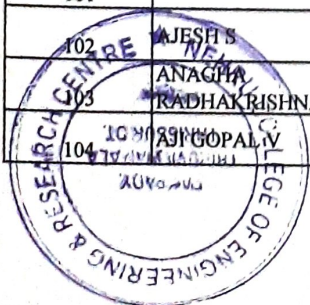 102 AJESH S
ANAGHA
103 RADHAKRISHN
104 AJI GOPAL V
NEHRU COLLEGE OF ENGINEERING & RESEARCH CENTRE